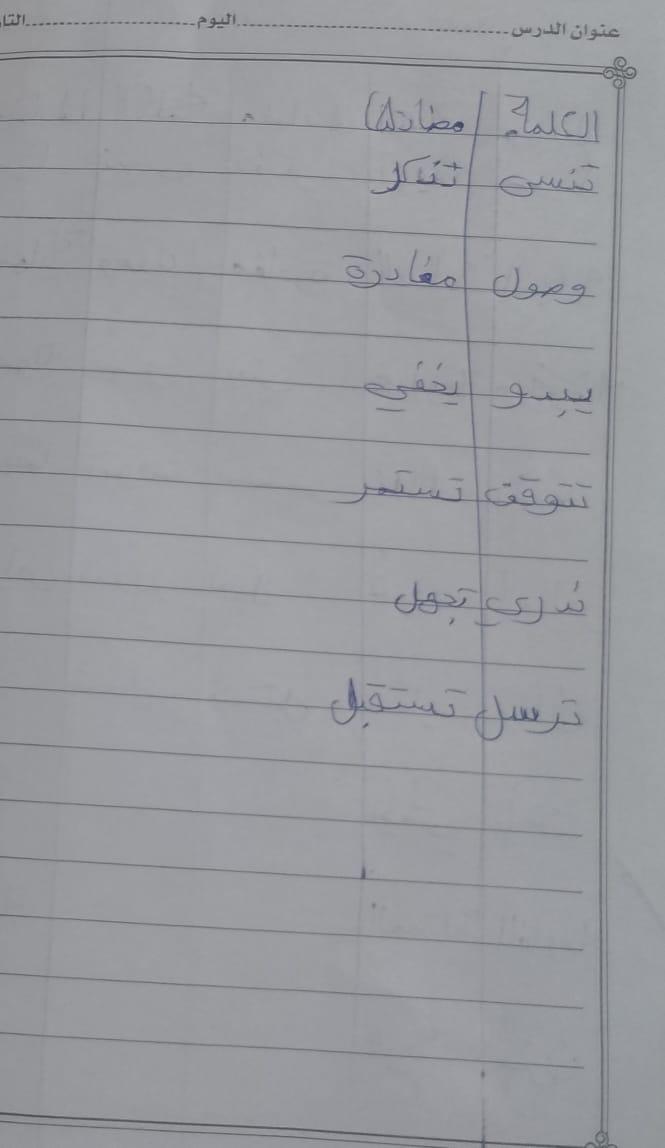 عنوان الدرس اليوم التا
الكلمة مضادها
تنسى تتذكر
وصول مغادرة
يبدو يخفي
تتوقف تستمر
تدري تجهل
ترسل تستقبل